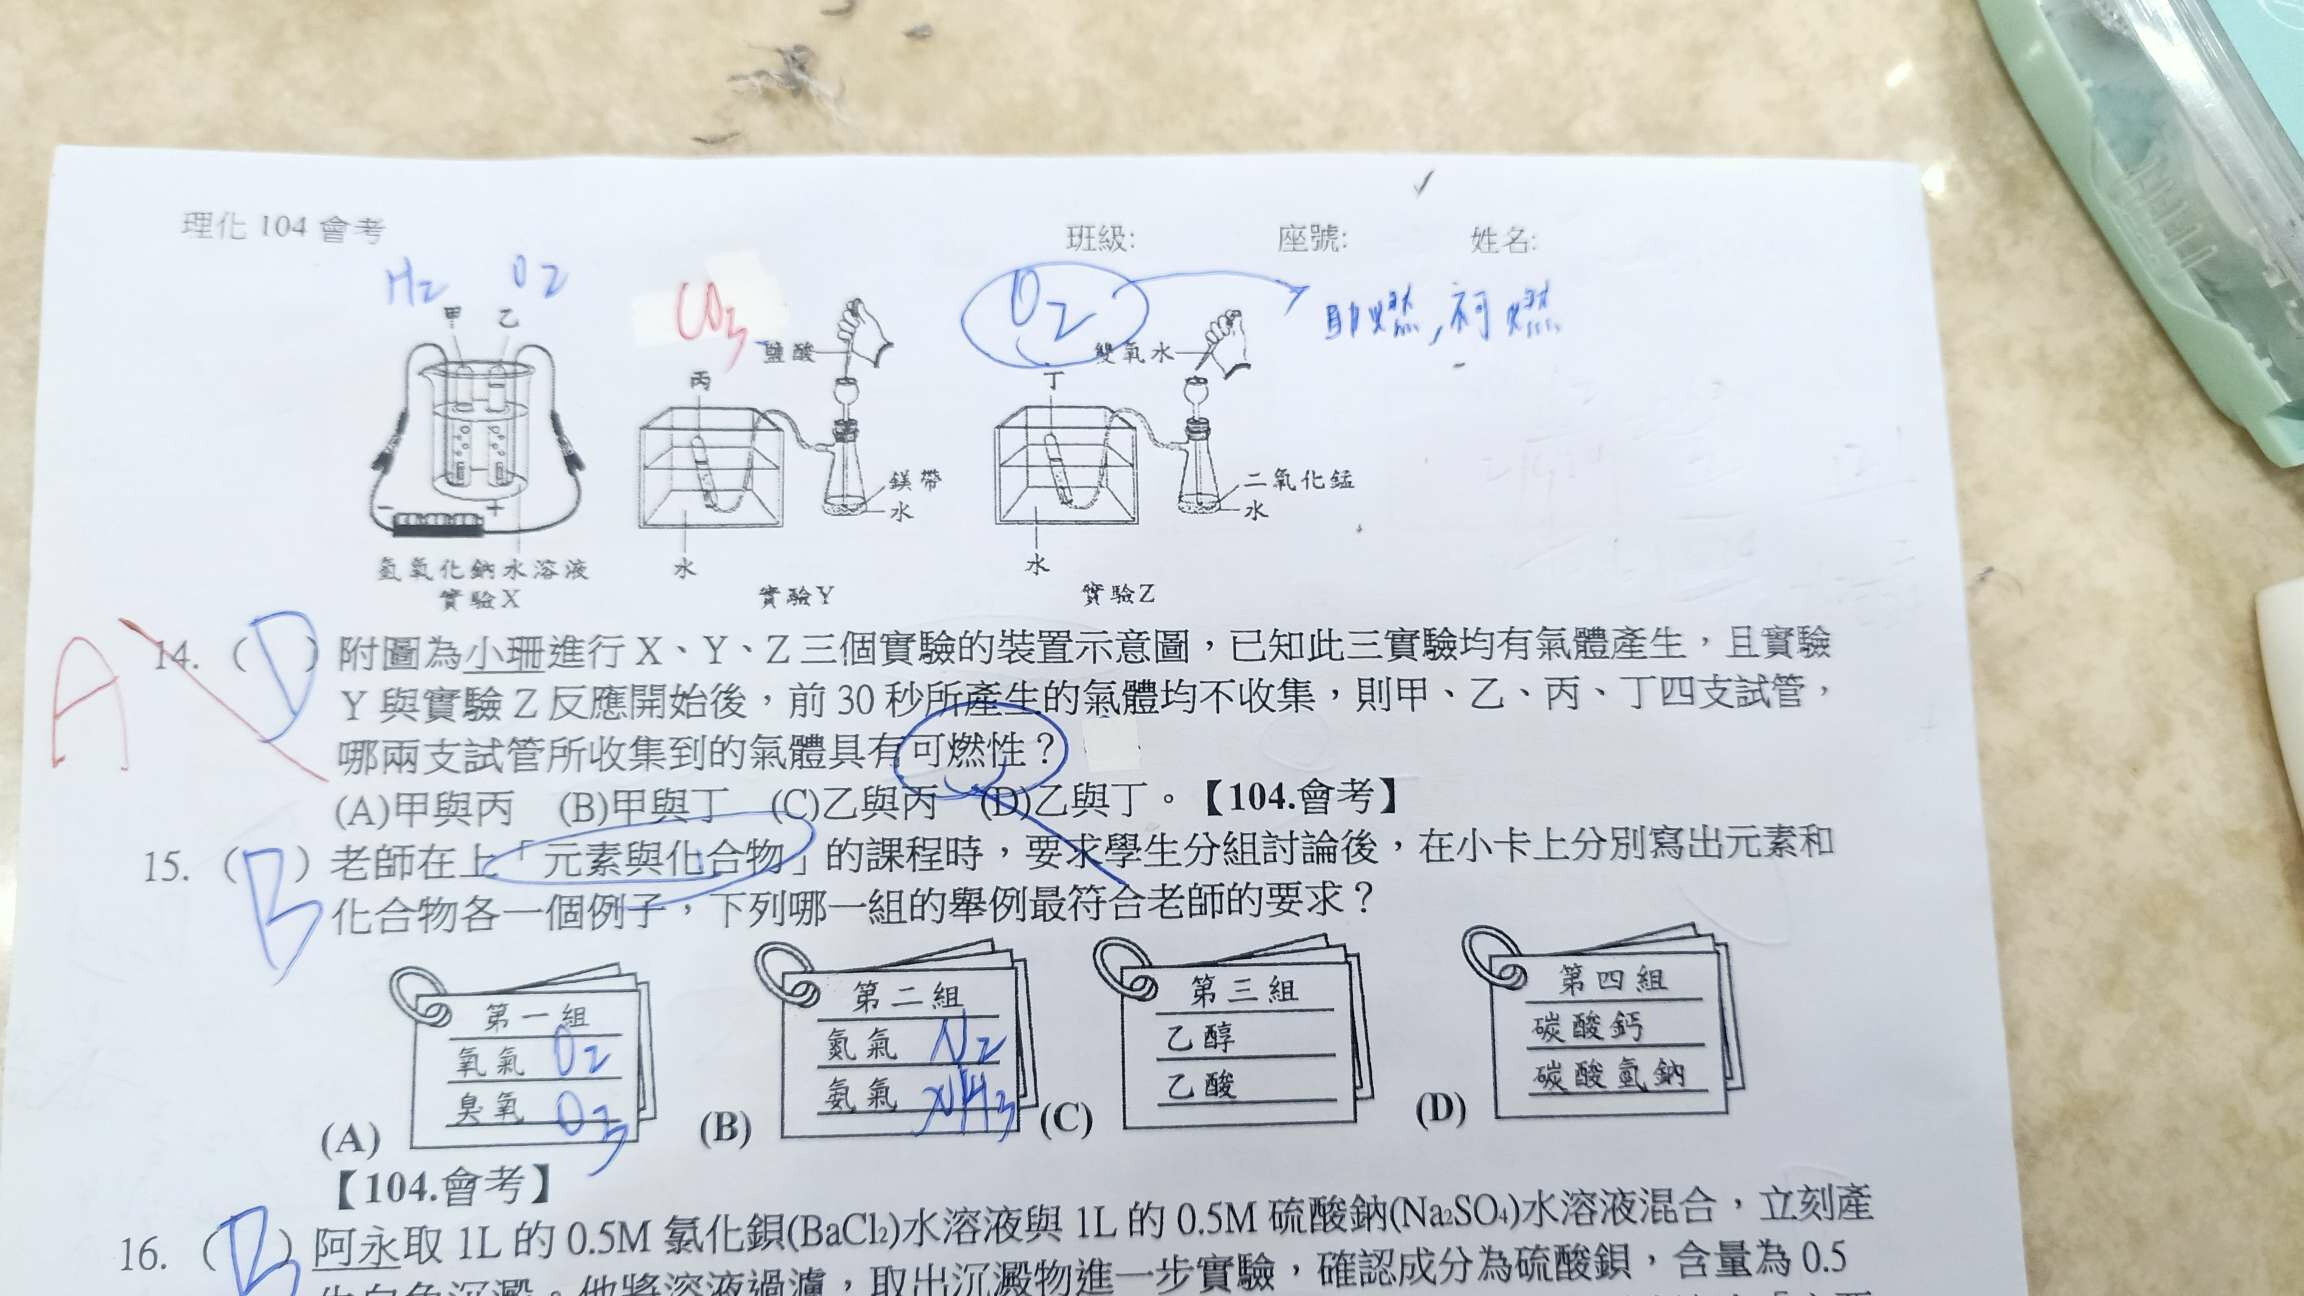 理化 104 會考 班級: 座號: 姓名:
H2 O2
甲 乙
O2
助燃,可燃
鹽酸
雙氧水
丙
丁
鎂帶
水
二氧化錳
水
- +
氫氧化鈉水溶液
水
水
實驗X
實驗Y
實驗Z
A
14. (D) 附圖為小珊進行 X、Y、Z 三個實驗的裝置示意圖，已知此三實驗均有氣體產生，且實驗
Y 與實驗 Z 反應開始後，前 30 秒所產生的氣體均不收集，則甲、乙、丙、丁四支試管，
哪兩支試管所收集到的氣體具有可燃性？
(A)甲與丙 (B)甲與丁 (C)乙與丙 (D)乙與丁。【104.會考】
15. (B) 老師在上「元素與化合物」的課程時，要求學生分組討論後，在小卡上分別寫出元素和
化合物各一個例子，下列哪一組的舉例最符合老師的要求？
第一組
氧氣 O2
臭氧 O3
(A)
第二組
氮氣 N2
氨氣 NH3
(B)
第三組
乙醇
乙酸
(C)
第四組
碳酸鈣
碳酸氫鈉
(D)
【104.會考】
16. (B) 阿永取 1L 的 0.5M 氯化鋇(BaCl2)水溶液與 1L 的 0.5M 硫酸鈉(Na2SO4)水溶液混合，立刻產
生白色沉澱。他將溶液過濾，取出沉澱物進一步實驗，確認成分為硫酸鋇，含量為 0.5